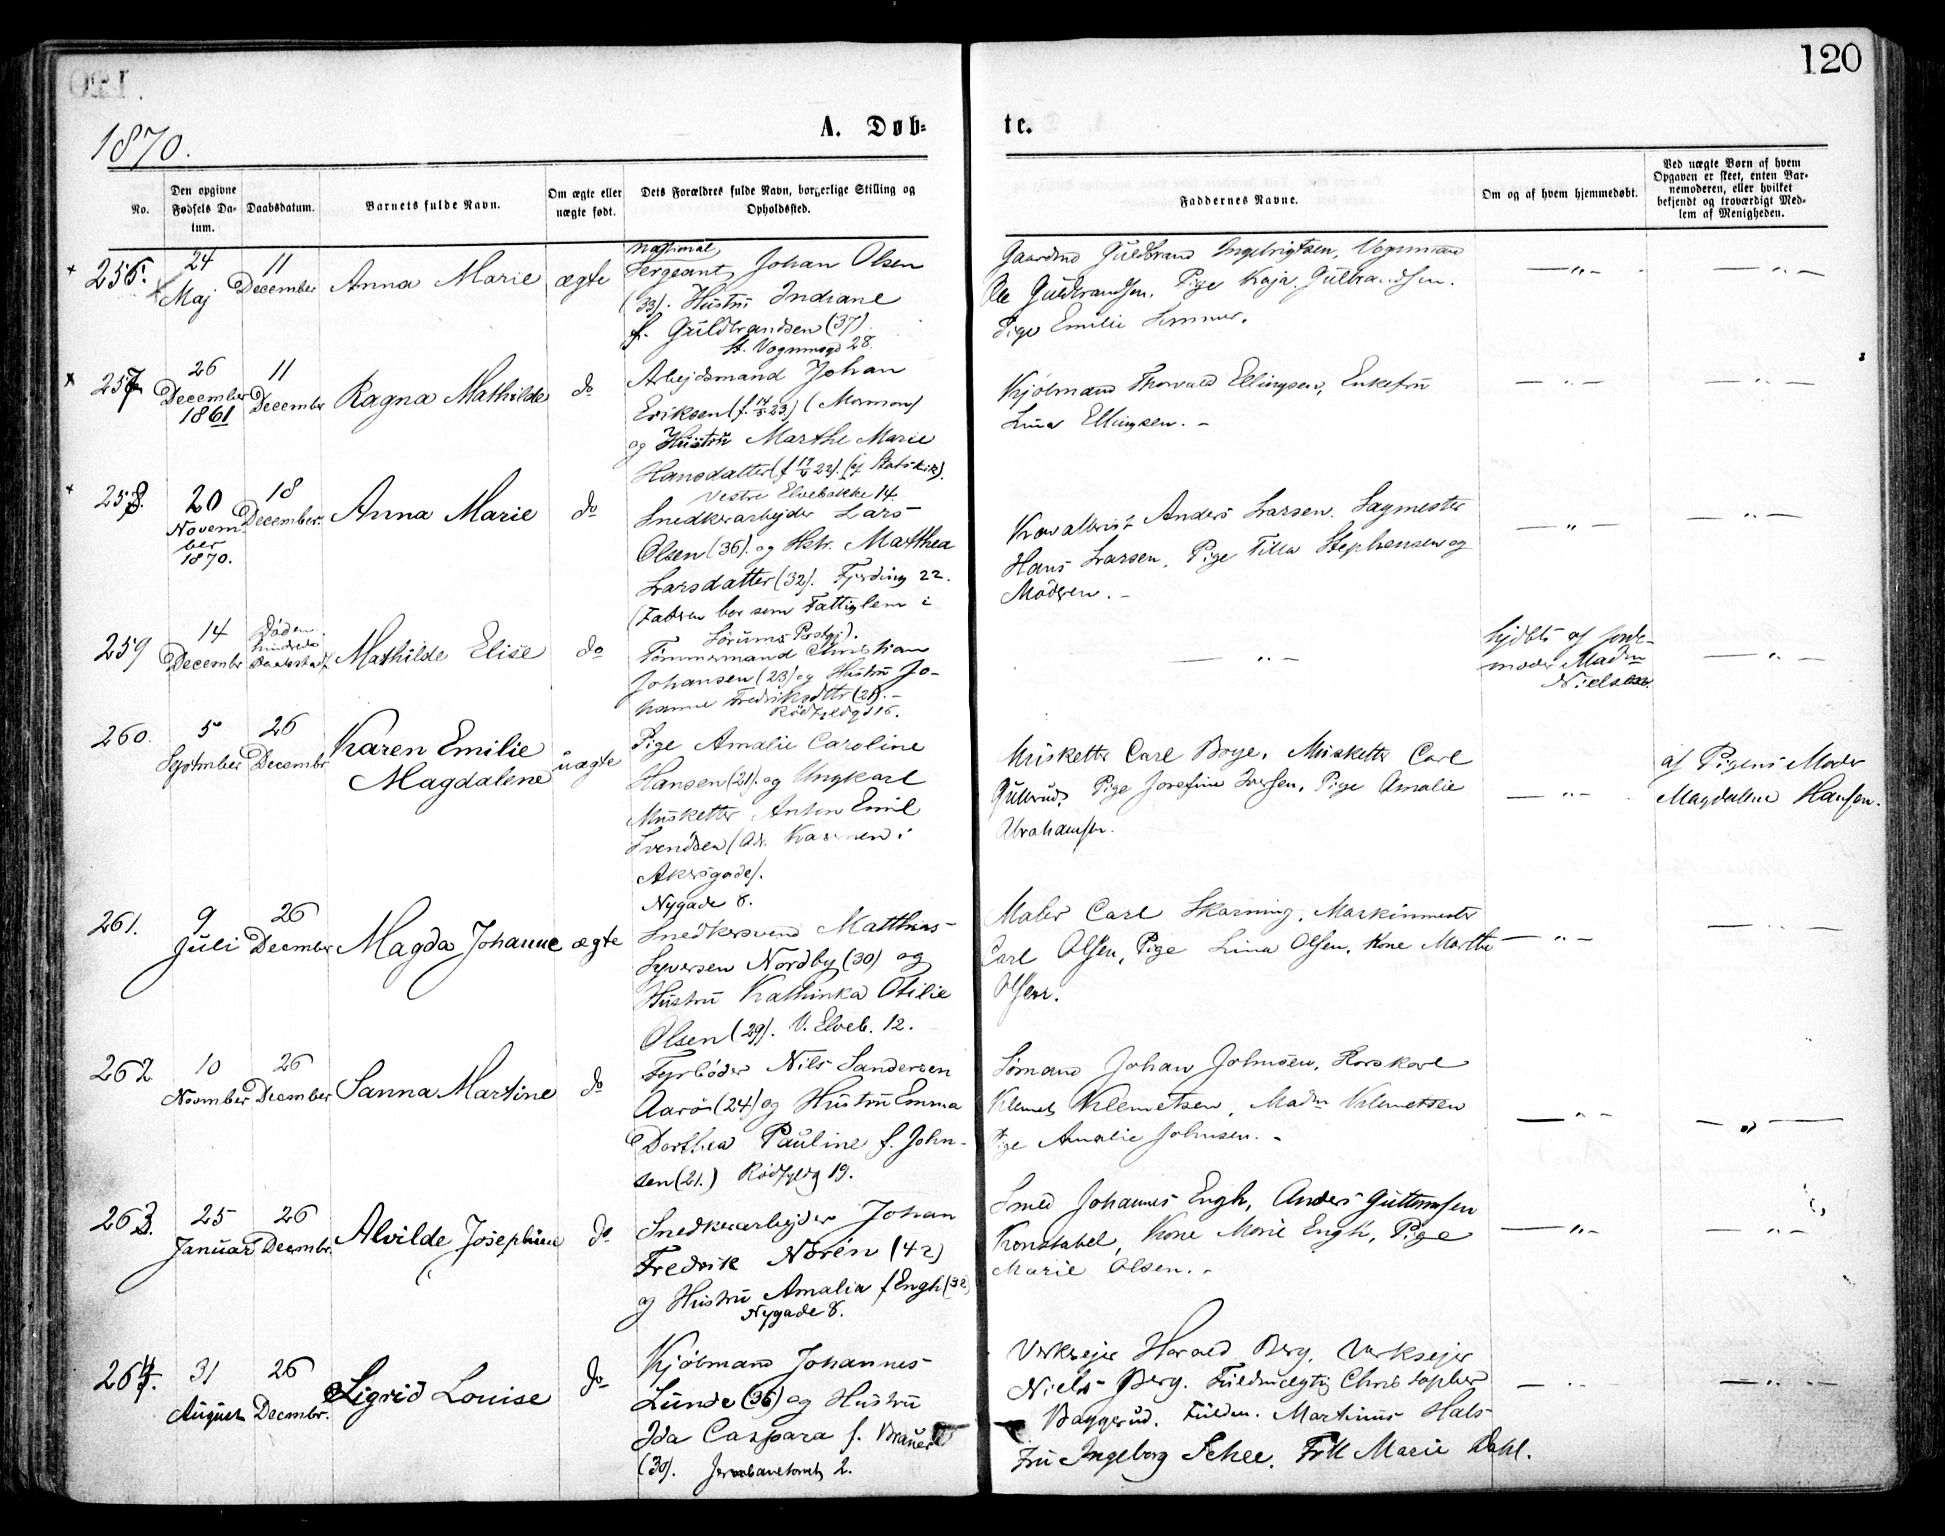 120
1870.
A. Døb-
te.
No.
Den opgivne Fødsels Datum.
Daabsdatum.
Barnets fulde Navn.
Om ægte eller uægte født.
Dets Forældres fulde Navn, borgerlige Stilling og Opholdssted.
Faddernes Navne.
Om og af hvem hjemmedøbt.
Ved uægte Børn af hvem
Opgaven er skeet, enten Bar-
nemoderen, eller hvilket
bekjendt og troværdigt Med-
lem af Menigheden.
256.
24
Maj
11
December
Anna Marie
ægte
National
Sergeant Johan Olsen
(33). Hustru Indiane
f. Guldbrandsen (37)
St. Vognmagd 28.
Gaardmd Guldbrand Ingebrigtsen, Vognmand
Ole Guldbrandsen, Pige Kaja Gulbrandsen.
Pige Emilie
257
26
December
1861
11
December
Ragna Mathilde
do
Arbejdsmand Johan
Eriksen (f. 23) (Mormon)
og Hustru Marthe Marie
Hansdatter (f 22). (af Statskirk).
Vestre Elvebakke 14.
Kjøbmand Thorvald Ellingsen, Enkefru
Lina Ellingsen. -
258.
20
Novem
ber
1870.
18
December.
Anna Marie
do
Snedkerarbejder Lars
Olsen (36). og Hstr. Matthea
Larsdatter (32). Fjerding 22.
(Faderen bor som Fattiglem i
Sørums Præstgj).
Kavallerist Anders Larsen. Sagmester
Hans Larsen, Pige Tilla Stephensen og
Moderen. -
259
14
Decembr
Døden
hindrede
Daabstadf.
Mathilde Elise
do
Tømmermand Christian
Johansen (23) og Hustru Jo-
hanne Fredriksdttr (21). -
Rødfyldgd 16.
hjdbt af Jorde-
moder Madm
Nielsen.
260.
5
September
26
Decembr
Karen Emilie
Magdalene
uægte
Pige Amalie Caroline
Hansen (21). og Ungkarl
Musketter Anton Emil
Svendsen (Ad. Kasernen i
Akersgade).
Nygade 8.
Musketter Carl Boye. Musketter Carl
Gullerud, Pige Josefine Iversen, Pige Amalie
Abrahamsen.
af Pigens Moder
Magdalene Hansen.
261.
9
Juli
26
Decmber
Magda Johanne
ægte
Snedkersvend Matthias
Syversen Nordby (30) og
Hustru Kathinka Otilie
Olsen (29). V. Elveb. 12.
Maler Carl Skarning, Maskinmester
Carl Olsen, Pige Lina Olsen, Kone Marthe
Olsen.
262
10
November
26
December
Sanna Martine
do
Fyrbøder Nils Sandersen
Aarøs (24) og Hustru Emma
Dorthea Pauline f. John-
sen (21.) Rødfyldg 19.
Sømand Johan Johnsen, Horskarl
Klemet Klemetsen, Madm Klemetsen
Pige Amalie Johnsen. -
263.
25
Januar
26
Decembr.
Alvilde Josephine
do
Snedkerarbejder Johan
Fredrik Norén (42)
og Hustru Amalia f Engh (32)
Nygade 8.
Smed Johannes Engh, Anders Guttormsen
Konstabel, Kone Marie Engh, Pige
Marie Olsen. -
264.
31
August
26
Decembr.
Sigrid Louise
do
Kjøbmand Johannes
Lunde (36) og Hustru
Ida Caspara f. Brauer
(30). Jernbanetorvet 2.
Verksejer Harald Berg, Verksejer
Niels Berg. Fuldmægtig Christopher
Baggerud. Fuldm. Martinus Hals
Fru Ingeborg Schee. Frk Marie Dahl.